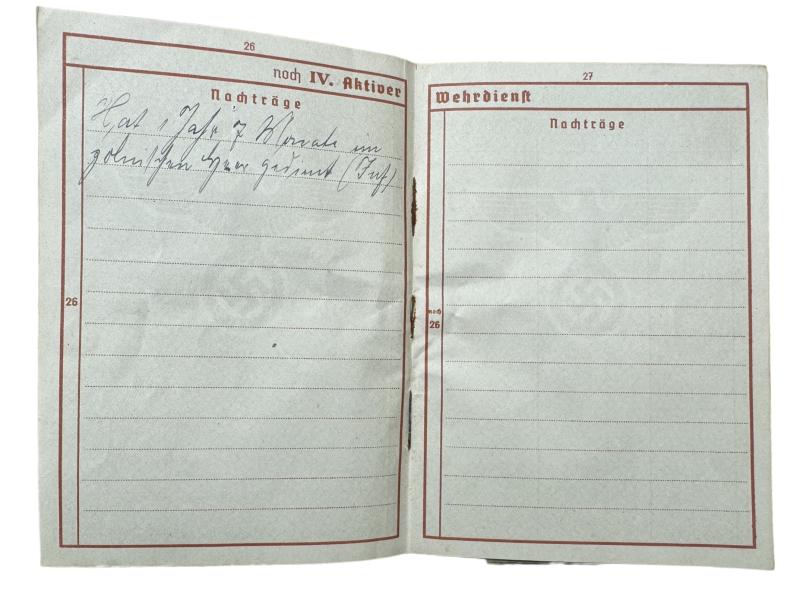 26
noch IV. Aktiver
Nachträge
Hat 1 Jahr 7 Monate im
polnischen Heer gedient (Inf)
26
27
Wehrdienst
Nachträge
noch
26